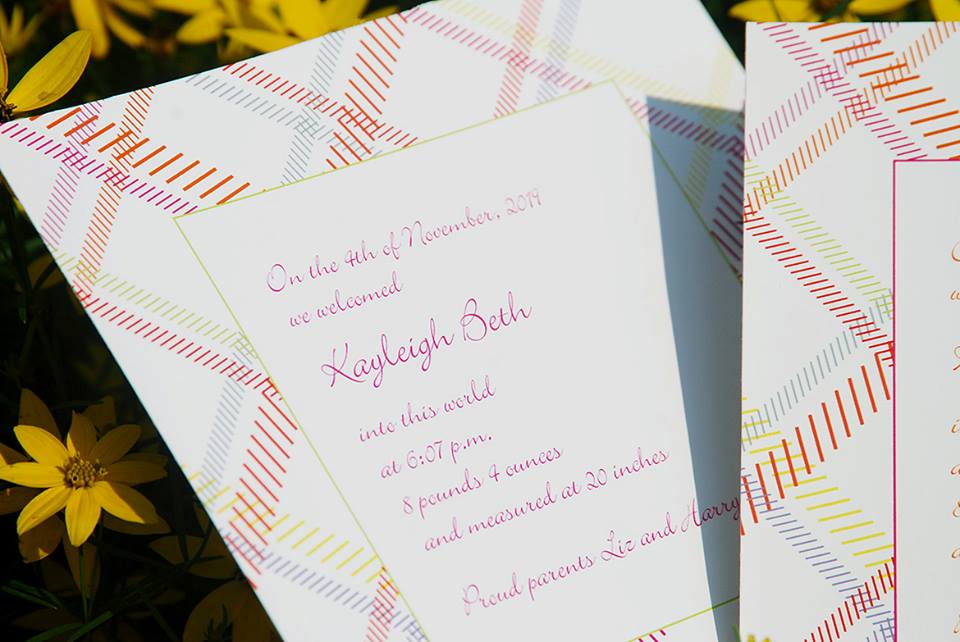 On the 4th of November, 2019
we welcomed
Kayleigh Beth
into this world
at 6:07 p.m.
8 pounds 4 ounces
and measured at 20 inches
Proud parents Liz and Harry